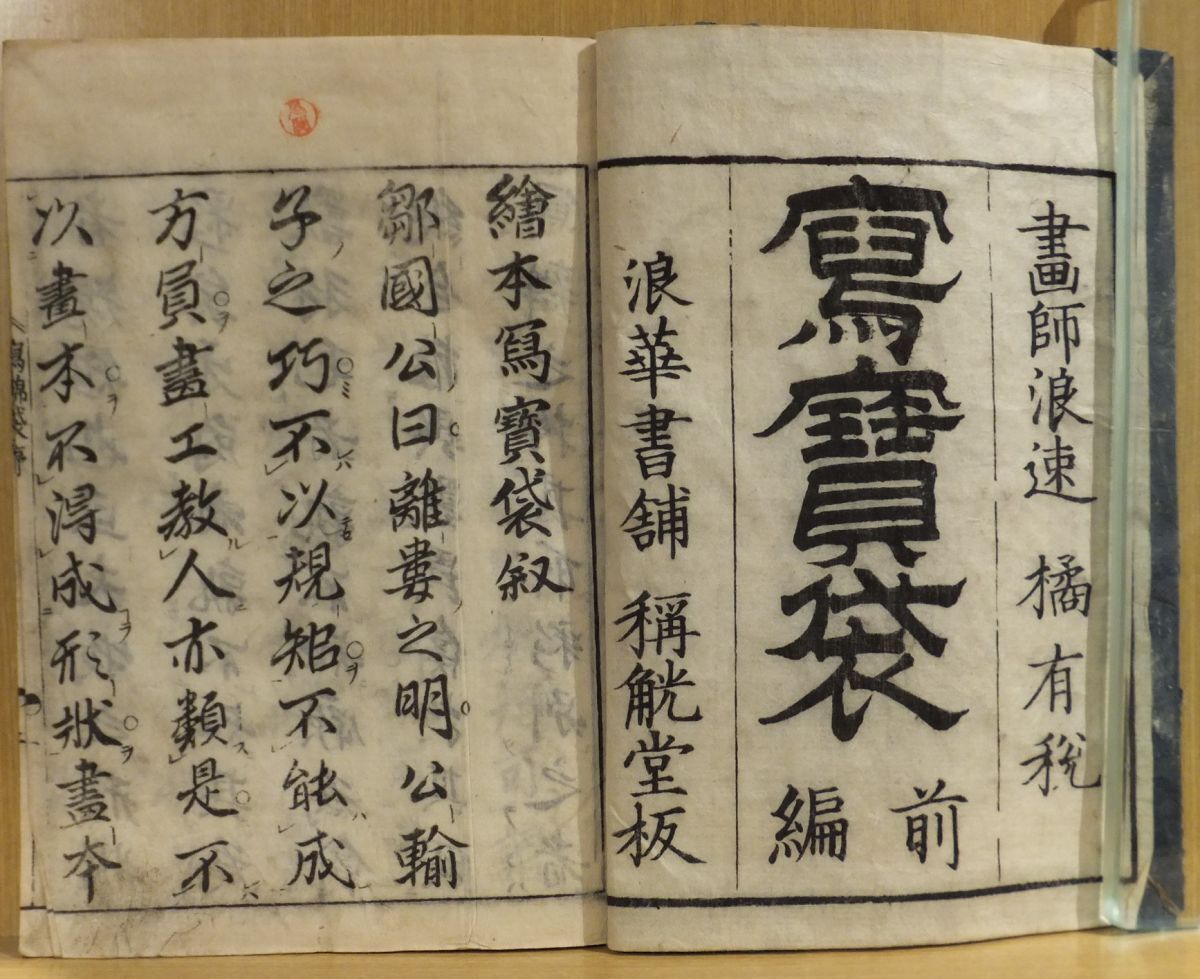 畫師浪速 橘有税
寫寶袋
前編
浪華書舗 稱觥堂板
繪本寫寶袋叙
鄒國公曰離婁之明公輸
子之巧不以規矩不能成
方員畫工教人亦類是不
以畫本不淂成形狀畫本